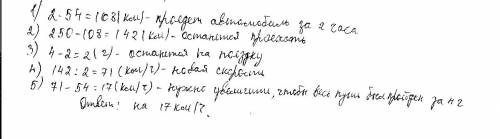 1) 2·54=108 (км) - проедет автомобиль за 2 часа
2) 250-108=142 (км) - останется проехать
3) 4-2=2 (г) - останется на поездку
4) 142:2=71 (км/г) - новая скорость
5) 71-54=17 (км/г) - нужно увеличить, чтобы весь путь был пройден за 4 г
Ответ: на 17 км/г.